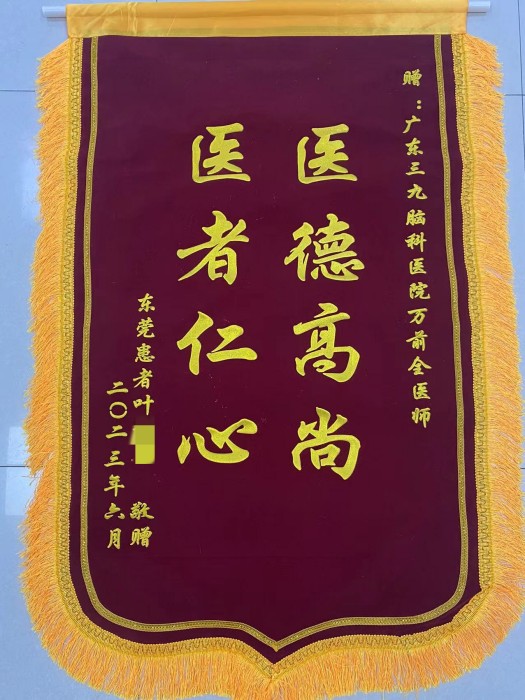 赠：广东三九脑科医院万前全医师
医德高尚
医者仁心
东莞患者叶 敬赠
二〇二三年六月